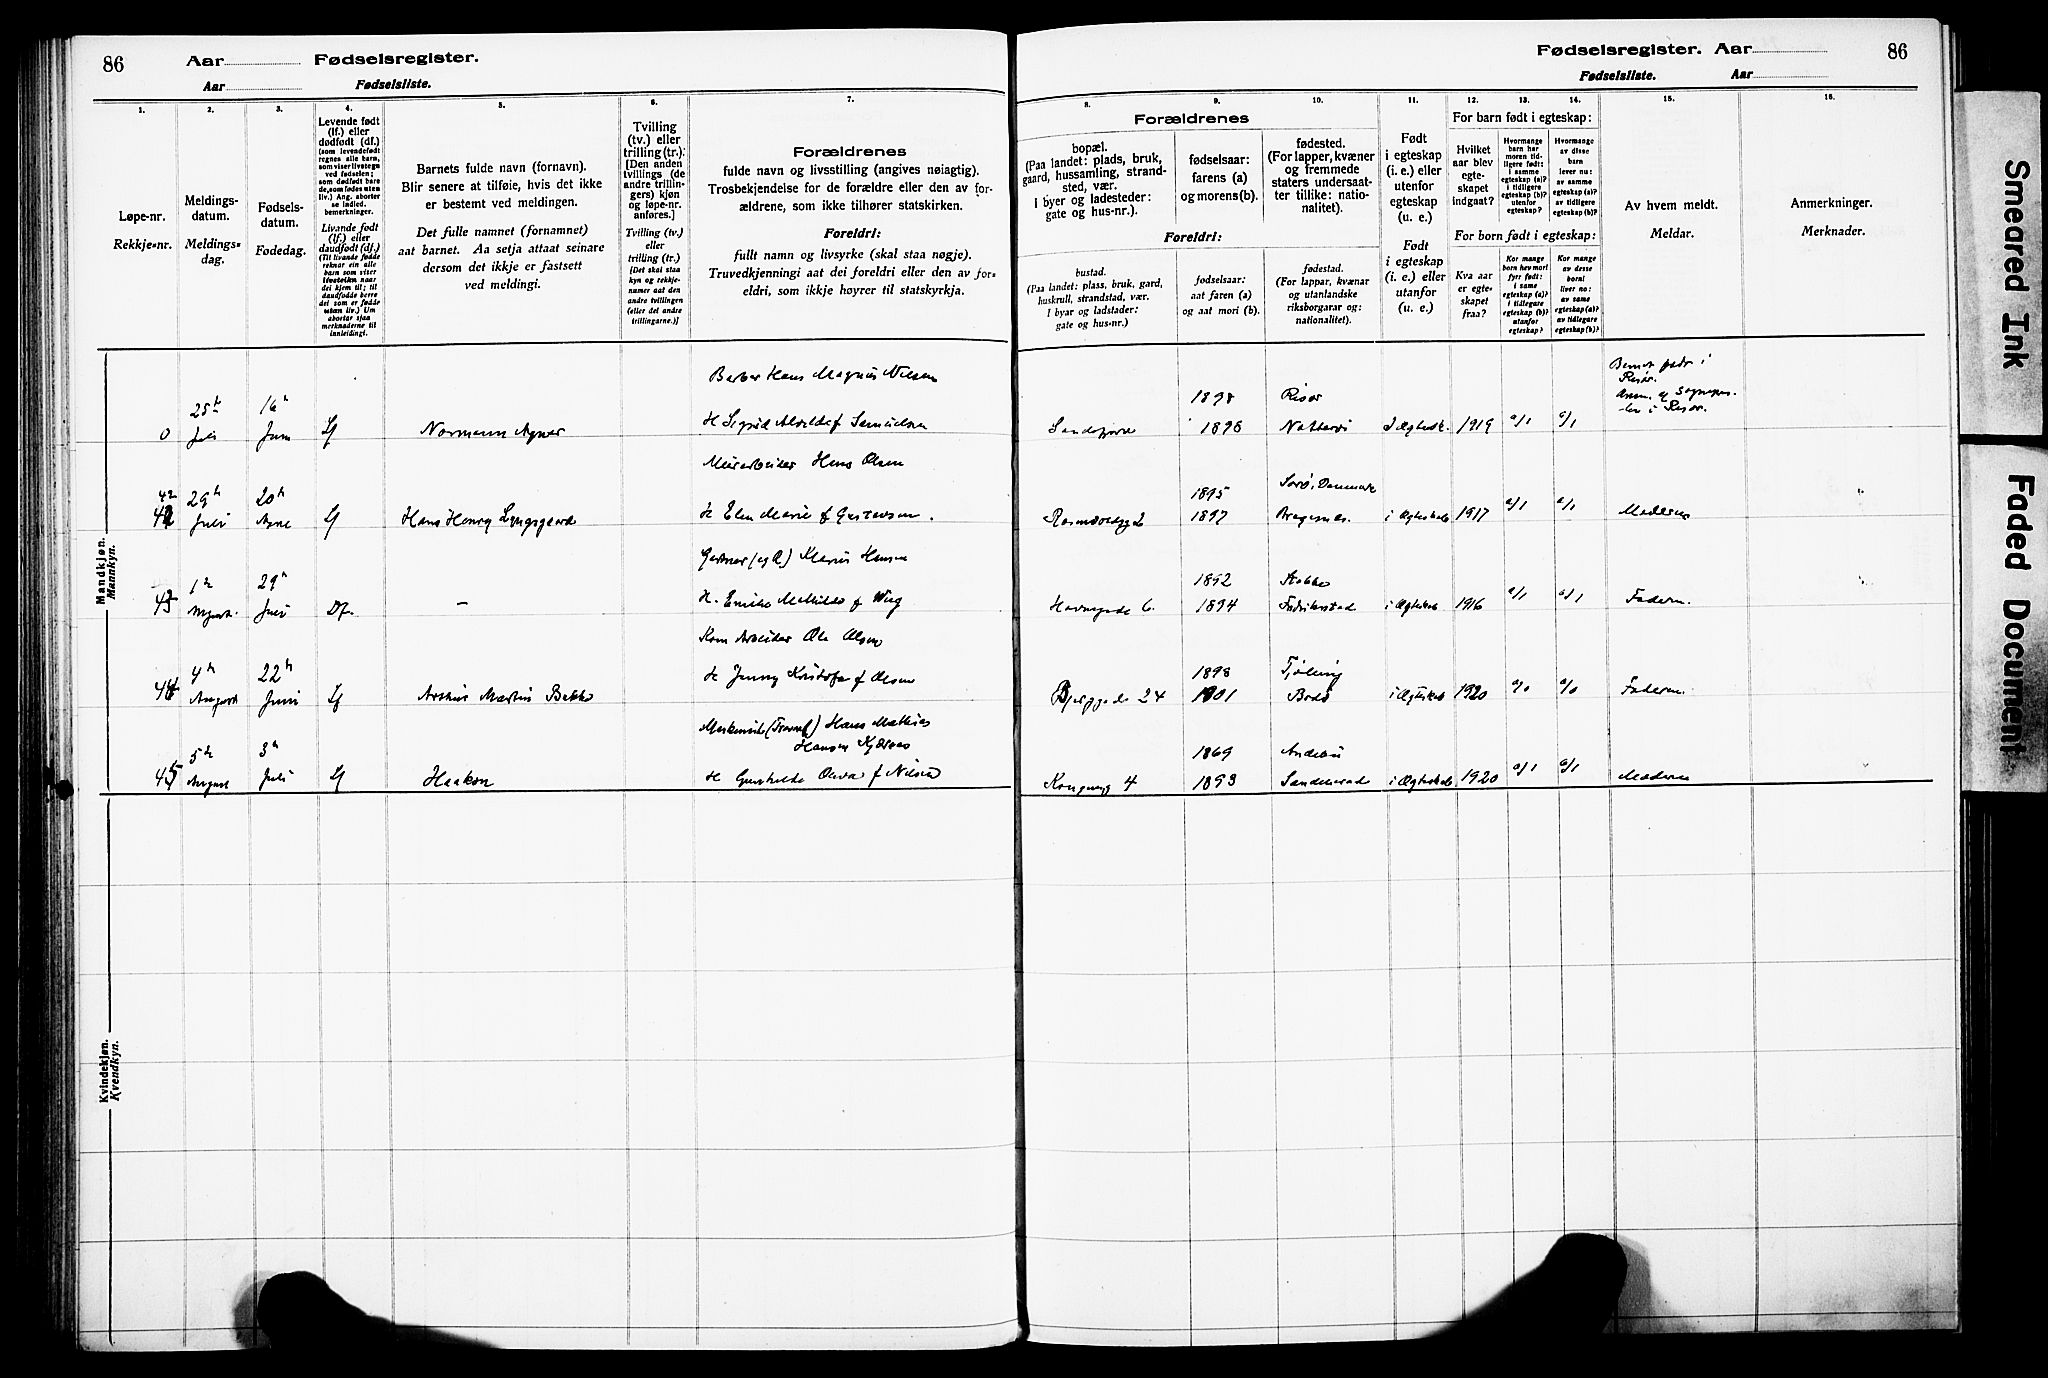 86
Aar
Fødselsregister.
Aar
Fødselsliste.
1.
Løpe-nr.
Rekkje-nr.
2.
Meldings-
datum.
Meldings-
dag.
3.
Fødsels-
datum.
Fødedag.
4.
Levende født
(lf.) eller
dødfødt (df.)
(som levendefødt
regnes alle barn,
som viser livstegn
ved fødselen;
som dødfødt bare
de, som fødes uten
liv.) Ang. aborter
se indled.
bemerkninger.
Livande født
(lf.) eller
daudfødt (df.)
(Til livande fødde
reknar ein alle
barn som viser
livsteikn naar
dei kjem til; til
daudfødde berre
dei som er fødde
utan liv.) Um
abortar sjaa
merknaderne til
innleidingi.
5.
Barnets fulde navn (fornavn).
Blir senere at tilføie, hvis det ikke
er bestemt ved meldingen.
Det fulle namnet (fornamnet)
aat barnet. Aa setja attaat seinare
dersom det ikkje er fastsett
ved meldingi.
6.
Tvilling
(tv.) eller
trilling (tr.):
[Den anden
tvillings (de
andre trillin-
gers) kjøn
og løpe-nr.
anføres.]
Tvilling (tv.)
eller
trilling (tr.)
[Det skal staa
kyn og rekkje-
numer aat den
andre tvillingen
(eller dei andre
trillingarne.)]
7.
Forældrenes
fulde navn og livsstilling (angives nøiagtig).
Trosbekjendelse for de forældre eller den av for-
ældrene, som ikke tilhører statskirken.
Foreldri:
fullt namn og livsyrke (skal staa nøgje).
Truvedkjenningi aat dei foreldri eller den av for-
eldri, som ikkje høyrer til statskyrkja.
Mandkjøn.
Mannkyn.
Barber Hans Magnus Nilsen
25
16
0
Juli
Juni
Lf
Normann Agnar
H. Sigrid Alvilde f Samuelsen
Murarbeider Hans Olsen
42
29
20
Juli
Lf
Hans Henry Lyngsgaard
H Elen Marie f Gustavsen.
Gartner Marius Hansen
1
29
43
August
Juli
Df.
—
H. Emilie Mathilde f Wiig
Kom Arbeider Ole Olsen
4
22
44
August
Juni
Lf
Arthur Martin Bakke
H Jenny Kristofa f Olsen
Hans Mathias
Hansen Kjærnes
5
3
45
August
Juli
Lf
Haakon
H Gunhilde Olava f Nilsen
Kvindekjøn.
Kvendkyn.
Fødselsregister. Aar
86
Fødselsliste.
Aar
8.
9.
10.
Forældrenes
bopæl.
(Paa landet: plads, bruk,
gaard, hussamling, strand-
sted, vær.
I byer og ladesteder:
gate og hus-nr.).
fødselsaar:
farens (a)
og morens (b).
fødested.
(For lapper, kvæner
og fremmede
staters undersaat-
ter tillike: natio-
nalitet).
Foreldri:
bustad.
(Paa landet: plass, bruk, gard,
huskrull, strandstad, vær.
I byar og ladstader:
gate og hus-nr.)
fødselsaar:
aat faren (a)
og aat mori (b).
fødestad.
(For lappar, kvænar
og utanlandske
riksborgarar og:
nationalitet).
11.
Født
i egteskap
(i. e.) eller
utenfor
egteskap
(u. e.)
Født
i egteskap
(i. e.) eller
utanfor
(u. e.)
12.
13.
14.
For barn født i egteskap:
Hvilket
aar blev
egte-
skapet
indgaat?
Hvormange
barn har
moren tid-
ligere født:
i samme
egteskap (a)?
i tidligere
egteskap (b)?
utenfor
egteskap?
Hvormange
av disse
barn
lever nu:
av samme
egteskap (a)?
av tidligere
egteskap (b)?
For born født i egteskap:
Kva aar
er egte-
skapet
fraa?
Kor mange
born hev mori
fyrr født:
i same
egteskap (a)?
i tidlegare
egteskap (b)?
utanfor
egteskap?
Kor mange
av desse
borni
liver no:
av same
egteskap (a)?
av tidlegare
egteskap (b)?
15.
Av hvem meldt.
Meldar.
16.
Anmerkninger.
Merknader.
Barnet født i
Risør.
1898
Risør
Sandefjord
1898
Nøtterø
I Ægtesk.
1919
a/1
a/1
Sorø, Danmark
1895
2
1897
Bragernes.
i Ægteskab
1917
a/1
a/1
Moderen
1892
Stokke
Havnegade 6.
1894
Fredrikstad
i Ægteskab
1916
a/1
a/1
Faderen.
1898
Tjølling
Bjerggade 24
1901
Bodø
i Ægteskab
1920
a/0
a/0
Faderen.
1869
Andebu
Kongensg 4
1893
Sandeherad
i Ægteskab
1920
a/1
a/1
Moderen
Smeared Ink
Faded Document